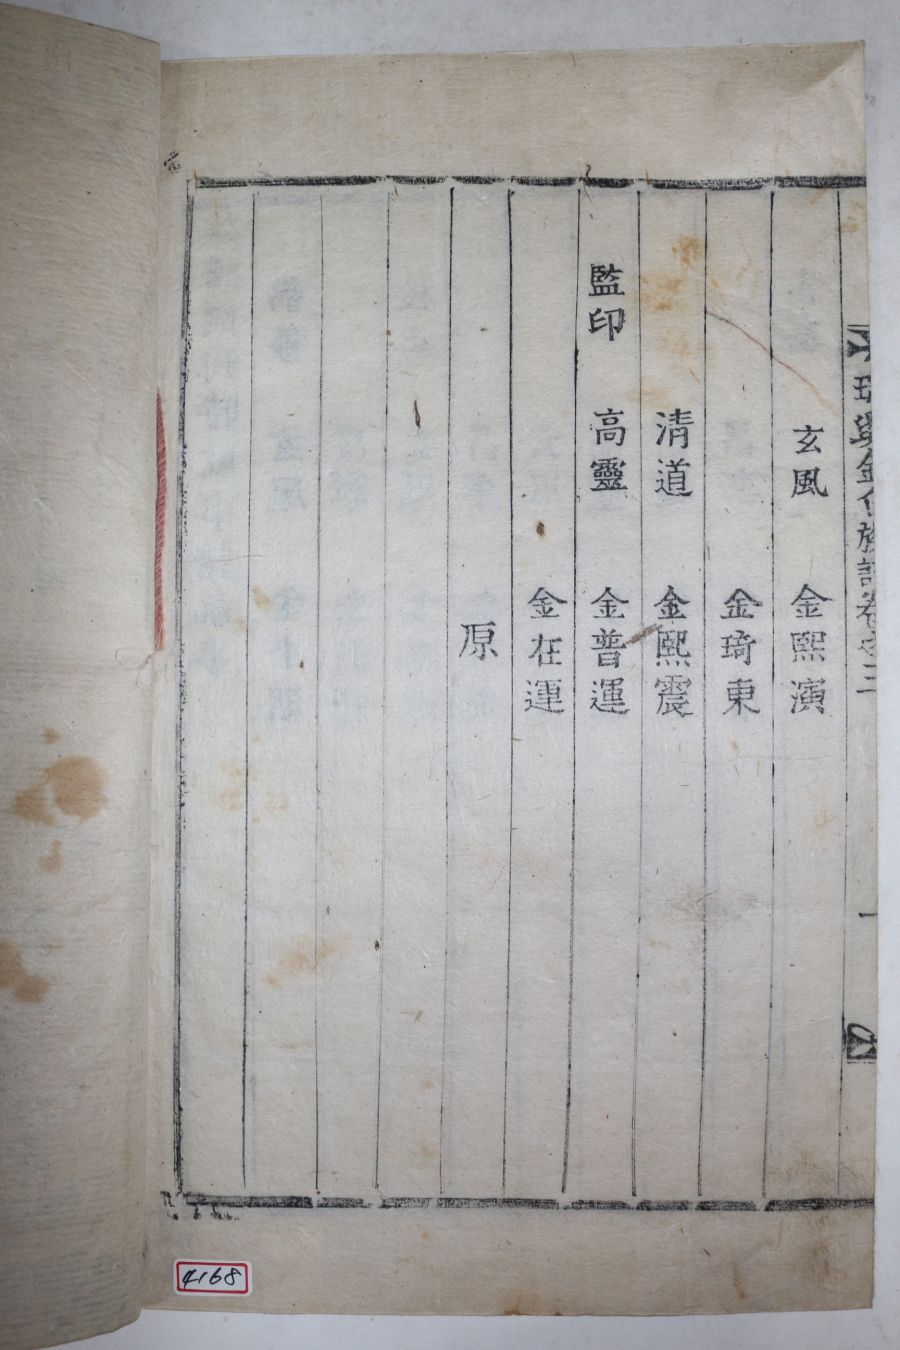 金氏族譜卷之三
一
玄風 金熙演
金琦東
清道 金熙震
監印 高靈 金普運
金在運
原
4168